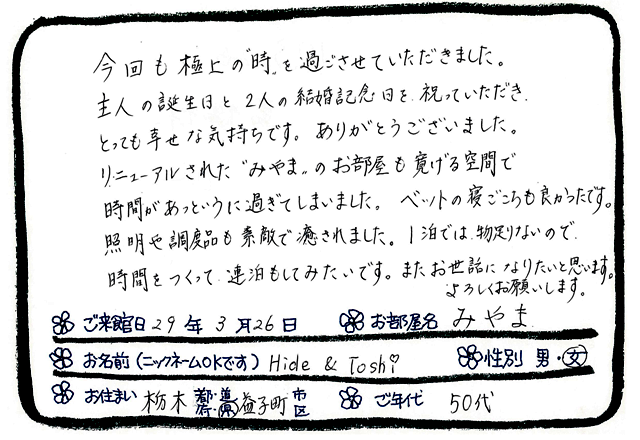 今回も極上の"時"を過ごさせていただきました。
主人の誕生日と2人の結婚記念日を祝っていただき、
とっても幸せな気持ちです。ありがとうございました。
リニューアルされた"みやま"のお部屋も寛げる空間で
時間があっというに過ぎてしまいました。ベットの寝ごこちも良かったです。
照明や調度品も素敵で癒されました。1泊では物足りないので、
時間をつくって連泊もしてみたいです。またお世話になりたいと思います。
よろしくお願いします。
ご来館日 29年 3月26日 お部屋名 みやま
お名前(ニックネームOKです) Hide & Toshi 性別 男・女
お住まい 栃木 都・道・府・県 益子町 市区 ご年代 50代